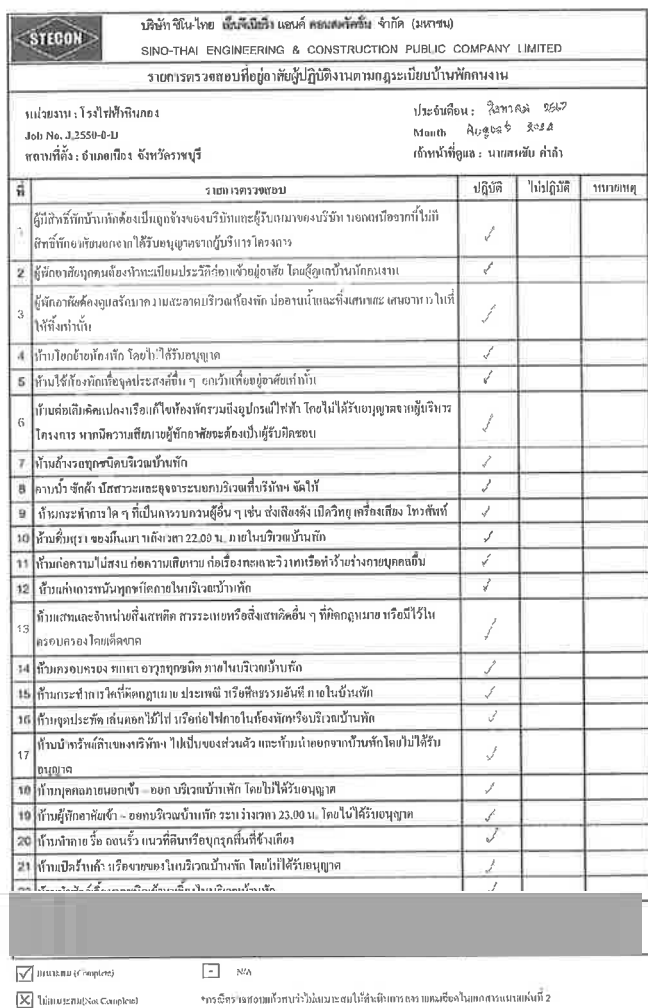 STECON
บริษัท ซิโน-ไทย เอ็นจีเนียริ่ง แอนด์ คอนสตรัคชั่น จำกัด (มหาชน)
SINO-THAI ENGINEERING & CONSTRUCTION PUBLIC COMPANY LIMITED
รายการตรวจสอบที่อยู่อาศัยผู้ปฏิบัติงานตามกฎระเบียบบ้านพักคนงาน
หน่วยงาน : โรงไฟฟ้าหินกอง
ประจำเดือน : สิงหาคม 2567
Job No. J.2550-0-D
Month August 2024
สถานที่ตั้ง : อำเภอเมือง จังหวัดราชบุรี
เจ้าหน้าที่ดูแล : นายสมชัย คำลำ
ที่ รายการตรวจสอบ ปฏิบัติ ไม่ปฏิบัติ หมายเหตุ
1 ผู้มีสิทธิ์พักบ้านพักต้องเป็นลูกจ้างของบริษัทและผู้รับเหมาของบริษัท นอกเหนือจากนี้ไม่มี
สิทธิ์พักอาศัยนอกจากได้รับอนุญาตจากผู้บริหารโครงการ ✓
2 ผู้พักอาศัยทุกคนต้องทำทะเบียนประวัติก่อนเข้าอยู่อาศัย โดยผู้ดูแลบ้านพักคนงาน ✓
3 ผู้พักอาศัยต้องดูแลรักษาความสะอาดบริเวณห้องพัก บ่ออาบน้ำและทิ้งเศษขยะ เศษอาหาร ในที่
ให้ทิ้งเท่านั้น ✓
4 ห้ามโยกย้ายห้องพัก โดยไม่ได้รับอนุญาต ✓
5 ห้ามใช้ห้องพักเพื่อจุดประสงค์อื่น ๆ ยกเว้นเพื่ออยู่อาศัยเท่านั้น ✓
6 ห้ามต่อเติมดัดแปลงหรือแก้ไขห้องพักรวมถึงอุปกรณ์ไฟฟ้า โดยไม่ได้รับอนุญาตจากผู้บริหาร
โครงการ หากมีความเสียหายผู้พักอาศัยจะต้องเป็นผู้รับผิดชอบ ✓
7 ห้ามล้างรถทุกชนิดบริเวณบ้านพัก ✓
8 อาบน้ำ ซักผ้า ปัสสาวะและอุจจาระนอกบริเวณที่บริษัทฯ จัดให้ ✓
9 ห้ามกระทำการใด ๆ ที่เป็นการรบกวนผู้อื่น ๆ เช่น ส่งเสียงดัง เปิดวิทยุ เครื่องเสียง โทรทัศน์ ✓
10 ห้ามดื่มสุรา ของมึนเมา หลังเวลา 22.00 น. ภายในบริเวณบ้านพัก ✓
11 ห้ามก่อความไม่สงบ ก่อความเสียหาย ก่อเรื่องทะเลาะวิวาทหรือทำร้ายร่างกายบุคคลอื่น ✓
12 ห้ามเล่นการพนันทุกชนิดภายในบริเวณบ้านพัก ✓
13 ห้ามเสพและจำหน่ายสิ่งเสพติด สารระเหยหรือสิ่งเสพติดอื่น ๆ ที่ผิดกฎหมาย หรือมีไว้ใน
ครอบครองโดยเด็ดขาด ✓
14 ห้ามครอบครอง พกพา อาวุธทุกชนิด ภายในบริเวณบ้านพัก ✓
15 ห้ามกระทำการใดที่ผิดกฎหมาย ประเพณี หรือศีลธรรมอันดี ภายในบ้านพัก ✓
16 ห้ามจุดประทัด เล่นดอกไม้ไฟ หรือก่อไฟภายในห้องพักหรือบริเวณบ้านพัก ✓
17 ห้ามนำทรัพย์สินของบริษัทฯ ไปเป็นของส่วนตัว และห้ามนำออกจากบ้านพักโดยไม่ได้รับ
อนุญาต ✓
18 ห้ามบุคคลภายนอกเข้า – ออก บริเวณบ้านพัก โดยไม่ได้รับอนุญาต ✓
19 ห้ามผู้พักอาศัยเข้า – ออกบริเวณบ้านพัก ระหว่างเวลา 23.00 น. โดยไม่ได้รับอนุญาต ✓
20 ห้ามทำลาย รื้อ ถอนรั้ว แนวที่ดินหรือบุกรุกพื้นที่ข้างเคียง ✓
21 ห้ามเปิดร้านค้า หรือขายของในบริเวณบ้านพัก โดยไม่ได้รับอนุญาต ✓
✓ เหมาะสม (Complete) - N/A
X ไม่เหมาะสม(Not Complete) *กรณีตรวจสอบแล้วพบว่าไม่เหมาะสมให้ดำเนินการลงรายละเอียดในเอกสารแนบแผ่นที่ 2